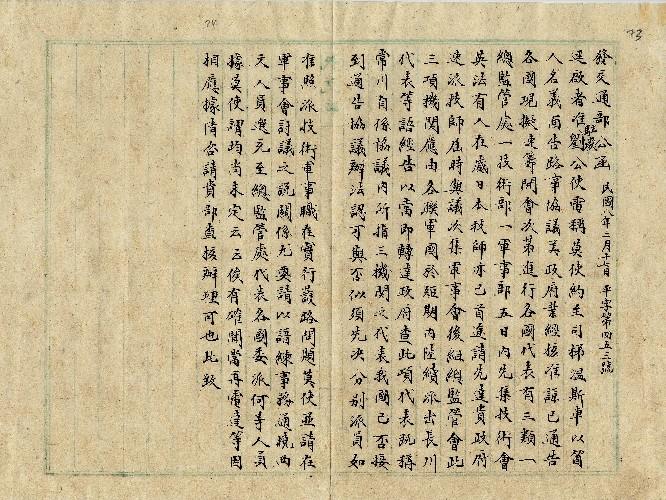 73
74
發交通部公函 民國八年二月十七日 平字第四五三號
逕啟者准駐崴劉公使電稱英使約至司梯溫斯車以箇
人名義面告路事協議美政府業經核准諒已通告
各國現擬速籌開會次第進行各國代表有三類一
總監管處一技術部一軍事部五日內先集技術會
英法有人在崴日本技師亦已首途請先達貴政府
速派技師届時與議次集軍事會後組總監管會此
三項機關應由各聯軍國於短期內陸續派出長川
代表等語經告以當即轉達政府查此項代表既稱
常川自係協議內所指三機關之代表我國已否接
到通告協議辦法認可與否似須先決分別派員如
准照派技術軍事職在實行護路問題英使並請在
軍事會討議之說關係尤要請以諳練事務通曉西
文人員選充至總監管處代表各國委派何等人員
據英使謂均尚未定云云俟有確聞當再電達等因
相應據情咨請貴部查核辦理可也此致